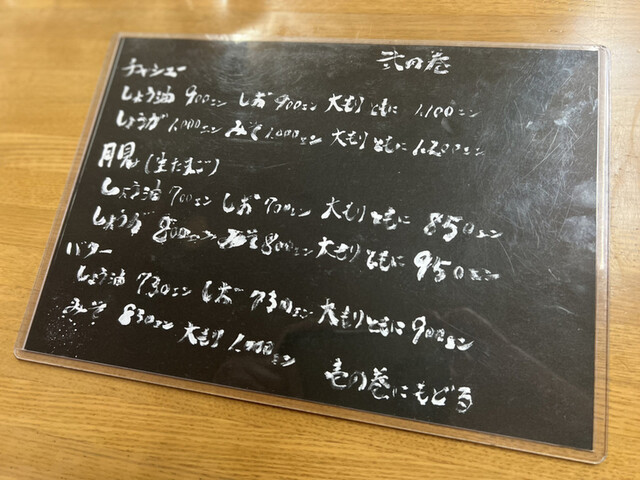 弐の巻
チャシュー
しょう油 900エン しお 900エン 大もりともに 1,100エン
しょうが 1,000エン みそ 1,000エン 大もりともに 1,200エン
月見(生たまご)
しょう油 700エン しお 700エン 大もり ともに 850エン
しょうが 800エン みそ 800エン 大もりともに 950エン
バター
しょう油 730エン しお 730エン 大もりともに 900エン
みそ 830エン 大もり 1,000エン
壱の巻にもどる